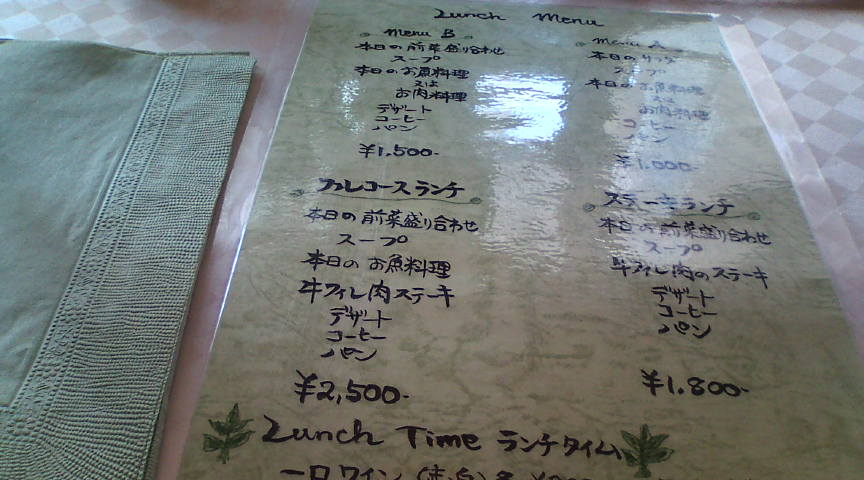 Lunch Menu
Menu B
本日の前菜盛り合わせ
スープ
本日のお魚料理
又は
お肉料理
デザート
コーヒー
パン
¥1,500-
Menu A
本日のサラダ
スープ
本日のお魚料理
又は
お肉料理
コーヒー
パン
¥1,000-
フルコースランチ
本日の前菜盛り合わせ
スープ
本日のお魚料理
牛フィレ肉ステーキ
デザート
コーヒー
パン
¥2,500-
ステーキランチ
本日の前菜盛り合わせ
スープ
牛フィレ肉のステーキ
デザート
コーヒー
パン
¥1.800-
Lunch Time ランチタイム
ワイン